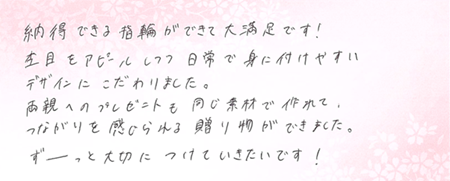 納得できる指輪ができて大満足です!
杢目をアピールしつつ日常で身に付けやすい
デザインにこだわりました。
両親へのプレゼントも同じ素材で作れて、
つながりを感じられる贈り物ができました。
ずーっと大切につけていきたいです!